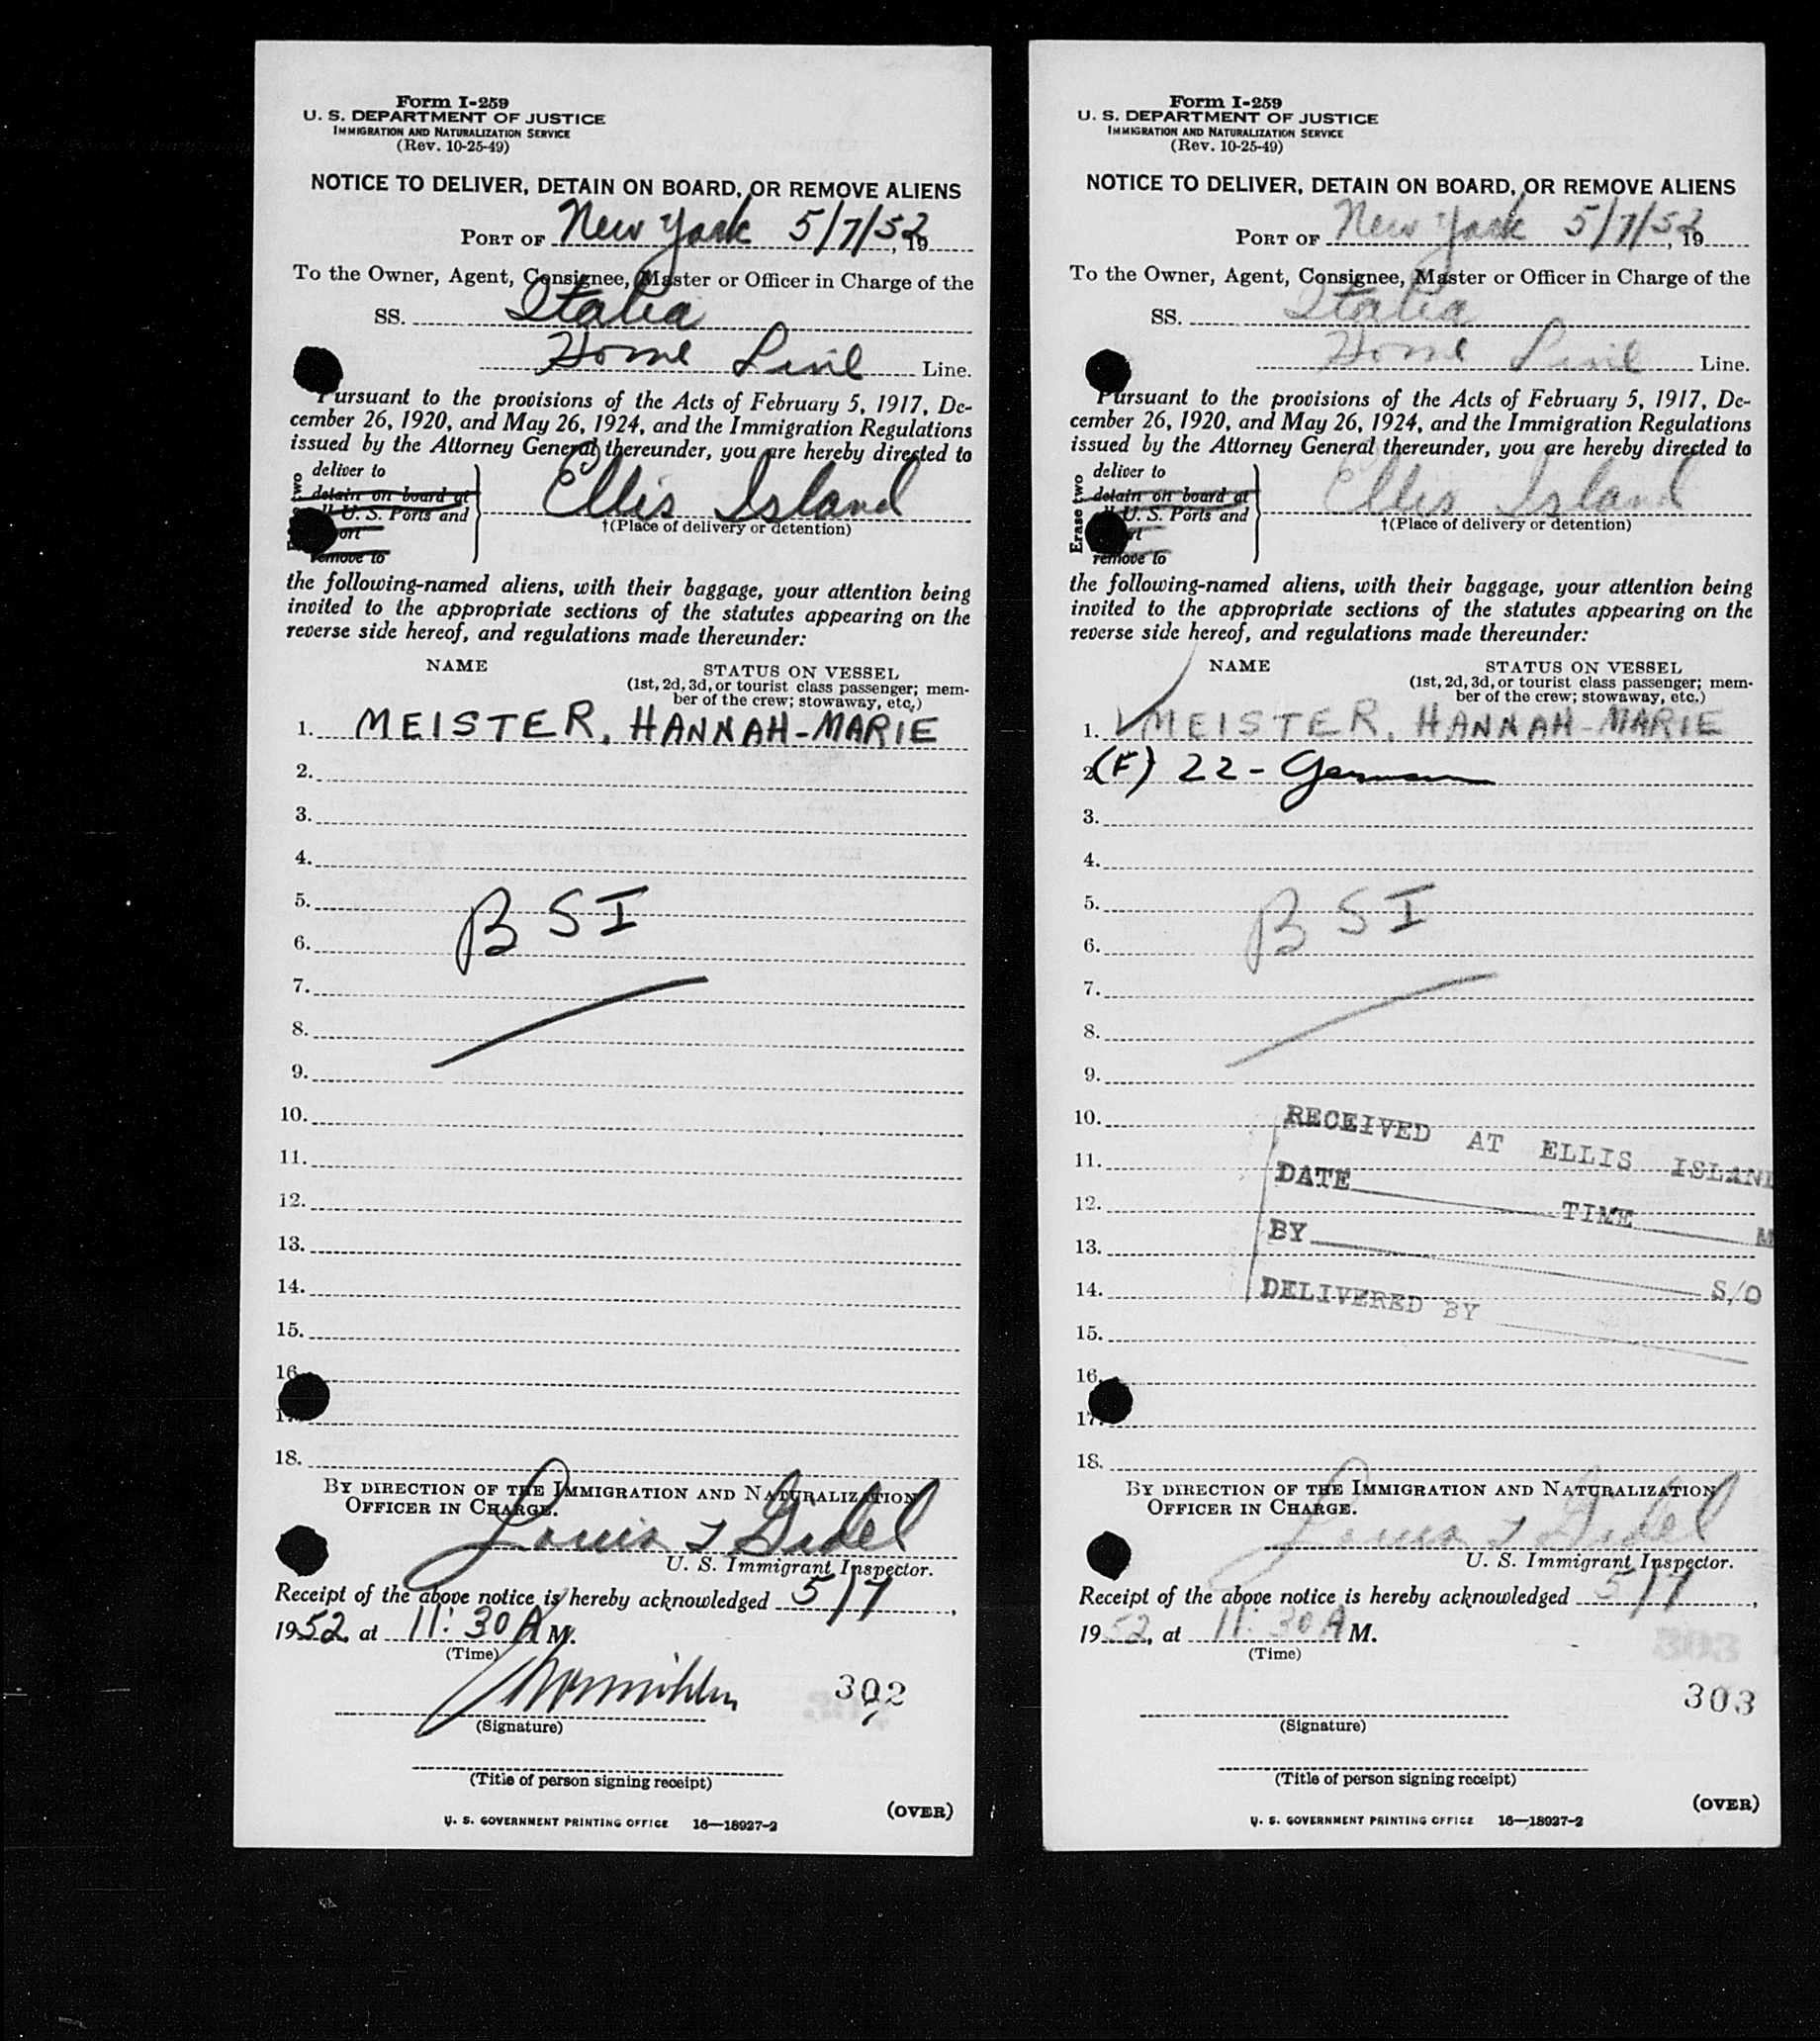 Form I-259
U. S. DEPARTMENT OF JUSTICE
IMMIGRATION AND NATURALIZATION SERVICE
(Rev. 10-25-49)
NOTICE TO DELIVER, DETAIN ON BOARD, OR REMOVE ALIENS
PORT OF New York 5/7/52, 19
To the Owner, Agent, Consignee, Master or Officer in Charge of the
SS. Italia
Home Line Line.
Pursuant to the provisions of the Acts of February 5, 1917, De-
cember 26, 1920, and May 26, 1924, and the Immigration Regulations
issued by the Attorney General thereunder, you are hereby directed to
deliver to
detain on board at
U. S. Ports and
remove to
Ellis Island
†(Place of delivery or detention)
the following-named aliens, with their baggage, your attention being
invited to the appropriate sections of the statutes appearing on the
reverse side hereof, and regulations made thereunder:
NAME
STATUS ON VESSEL
(1st, 2d, 3d, or tourist class passenger; mem-
ber of the crew; stowaway, etc.)
1. MEISTER, HANNAH-MARIE
2.
3.
4.
5.
BSI
6.
7.
8.
9.
10.
11.
12.
13.
14.
15.
16.
17.
18.
BY DIRECTION OF THE IMMIGRATION AND NATURALIZATION
OFFICER IN CHARGE.
Louis Gidel
U. S. Immigrant Inspector.
Receipt of the above notice is hereby acknowledged 5/7,
1952, at 11:30 A M.
(Time)
302
(Signature)
(Title of person signing receipt)
(OVER)
U. S. GOVERNMENT PRINTING OFFICE 16—18927-2
Form I-259
U. S. DEPARTMENT OF JUSTICE
IMMIGRATION AND NATURALIZATION SERVICE
(Rev. 10-25-49)
NOTICE TO DELIVER, DETAIN ON BOARD, OR REMOVE ALIENS
PORT OF New York 5/7/52, 19
To the Owner, Agent, Consignee, Master or Officer in Charge of the
SS. Italia
Home Line Line.
Pursuant to the provisions of the Acts of February 5, 1917, De-
cember 26, 1920, and May 26, 1924, and the Immigration Regulations
issued by the Attorney General thereunder, you are hereby directed to
Erase two
deliver to
detain on board at
U. S. Ports and
remove to
Ellis Island
†(Place of delivery or detention)
the following-named aliens, with their baggage, your attention being
invited to the appropriate sections of the statutes appearing on the
reverse side hereof, and regulations made thereunder:
NAME
STATUS ON VESSEL
(1st, 2d, 3d, or tourist class passenger; mem-
ber of the crew; stowaway, etc.)
1. MEISTER, HANNAH-MARIE
2. (F) 22 - German
3.
4.
5.
BSI
6.
7.
8.
9.
10.
RECEIVED AT ELLIS ISLAND
11.
DATE TIME M
12.
BY S/O
13.
14.
DELIVERED BY
15.
16.
17.
18.
BY DIRECTION OF THE IMMIGRATION AND NATURALIZATION
OFFICER IN CHARGE.
Louis Gidel
U. S. Immigrant Inspector.
Receipt of the above notice is hereby acknowledged 5/7,
1952, at 11:30 A M.
(Time)
303
(Signature)
(Title of person signing receipt)
(OVER)
U. S. GOVERNMENT PRINTING OFFICE 16—18927-2